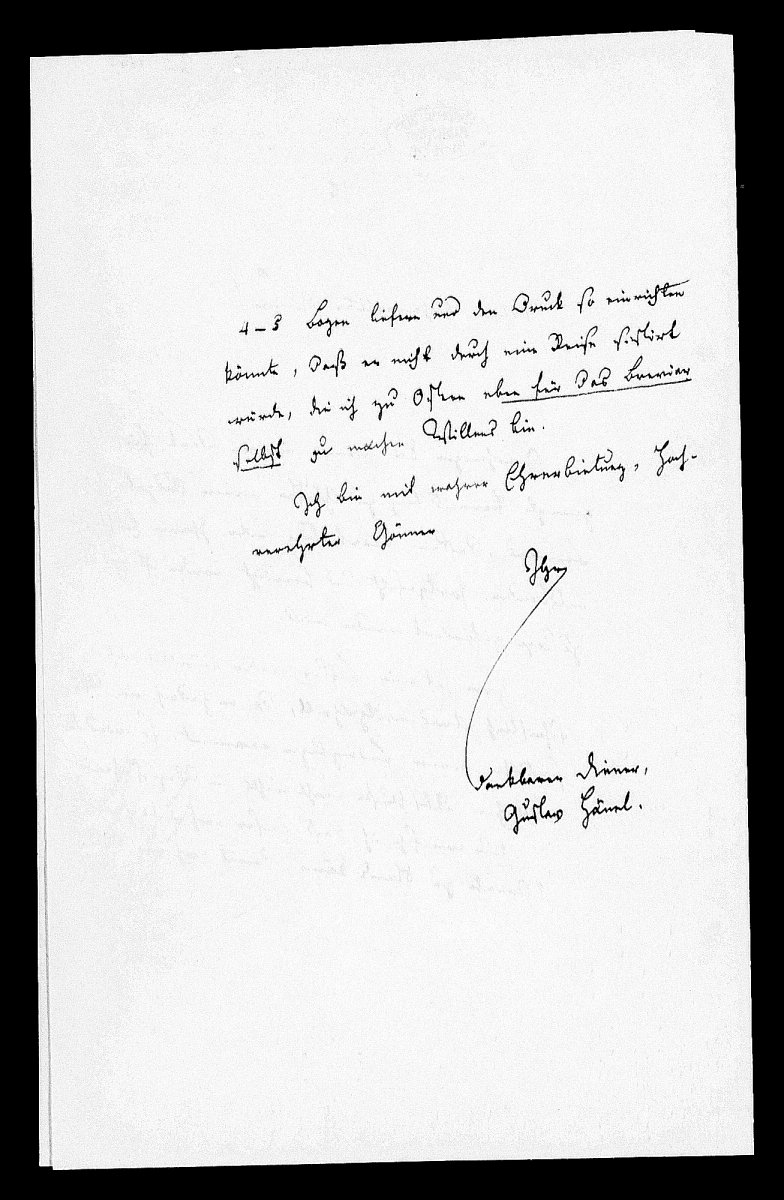 4–5 Bogen liefern und den Druck so einrichten
könnte, daß er nicht durch eine Reise sistirt
würde, die ich zu Ostern eben für das Breviar
selbst zu machen Willens bin.
Ich bin mit wahrer Ehrerbietung, Hoch-
verehrter Gönner
Ihr
dankbarer Diener,
Gustav Hänel.